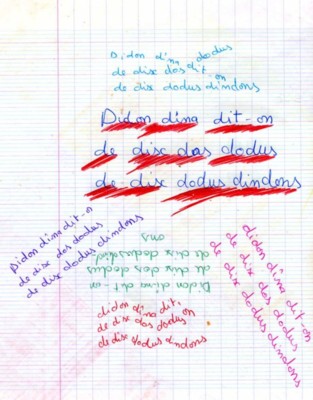 Didon dîna dodus
de dix dos dit-on
de dix dodus dindons
Didon dina dit-on
de dix dos dodus
de dix dodus dindons
Didon dina dit-on
de dix dos dodus
de dix dodus dindons
didon dîna dit-on
de dix dos dodus
de dix dodus dindons
Didon dina dit-on
de dix dos dodus
de dix dodus dind
ons
didon dîna dit.
de dix dos dodus
de dix dodus dindons